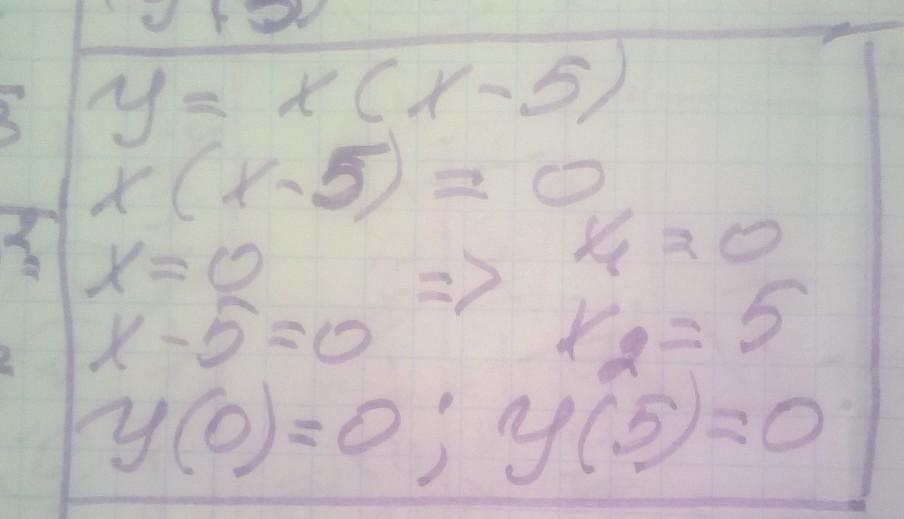 y(5)
y = x(x-5)
x(x-5) = 0
x=0 => x₁ = 0
x-5=0 x₂ = 5
y(0)=0; y(5)=0